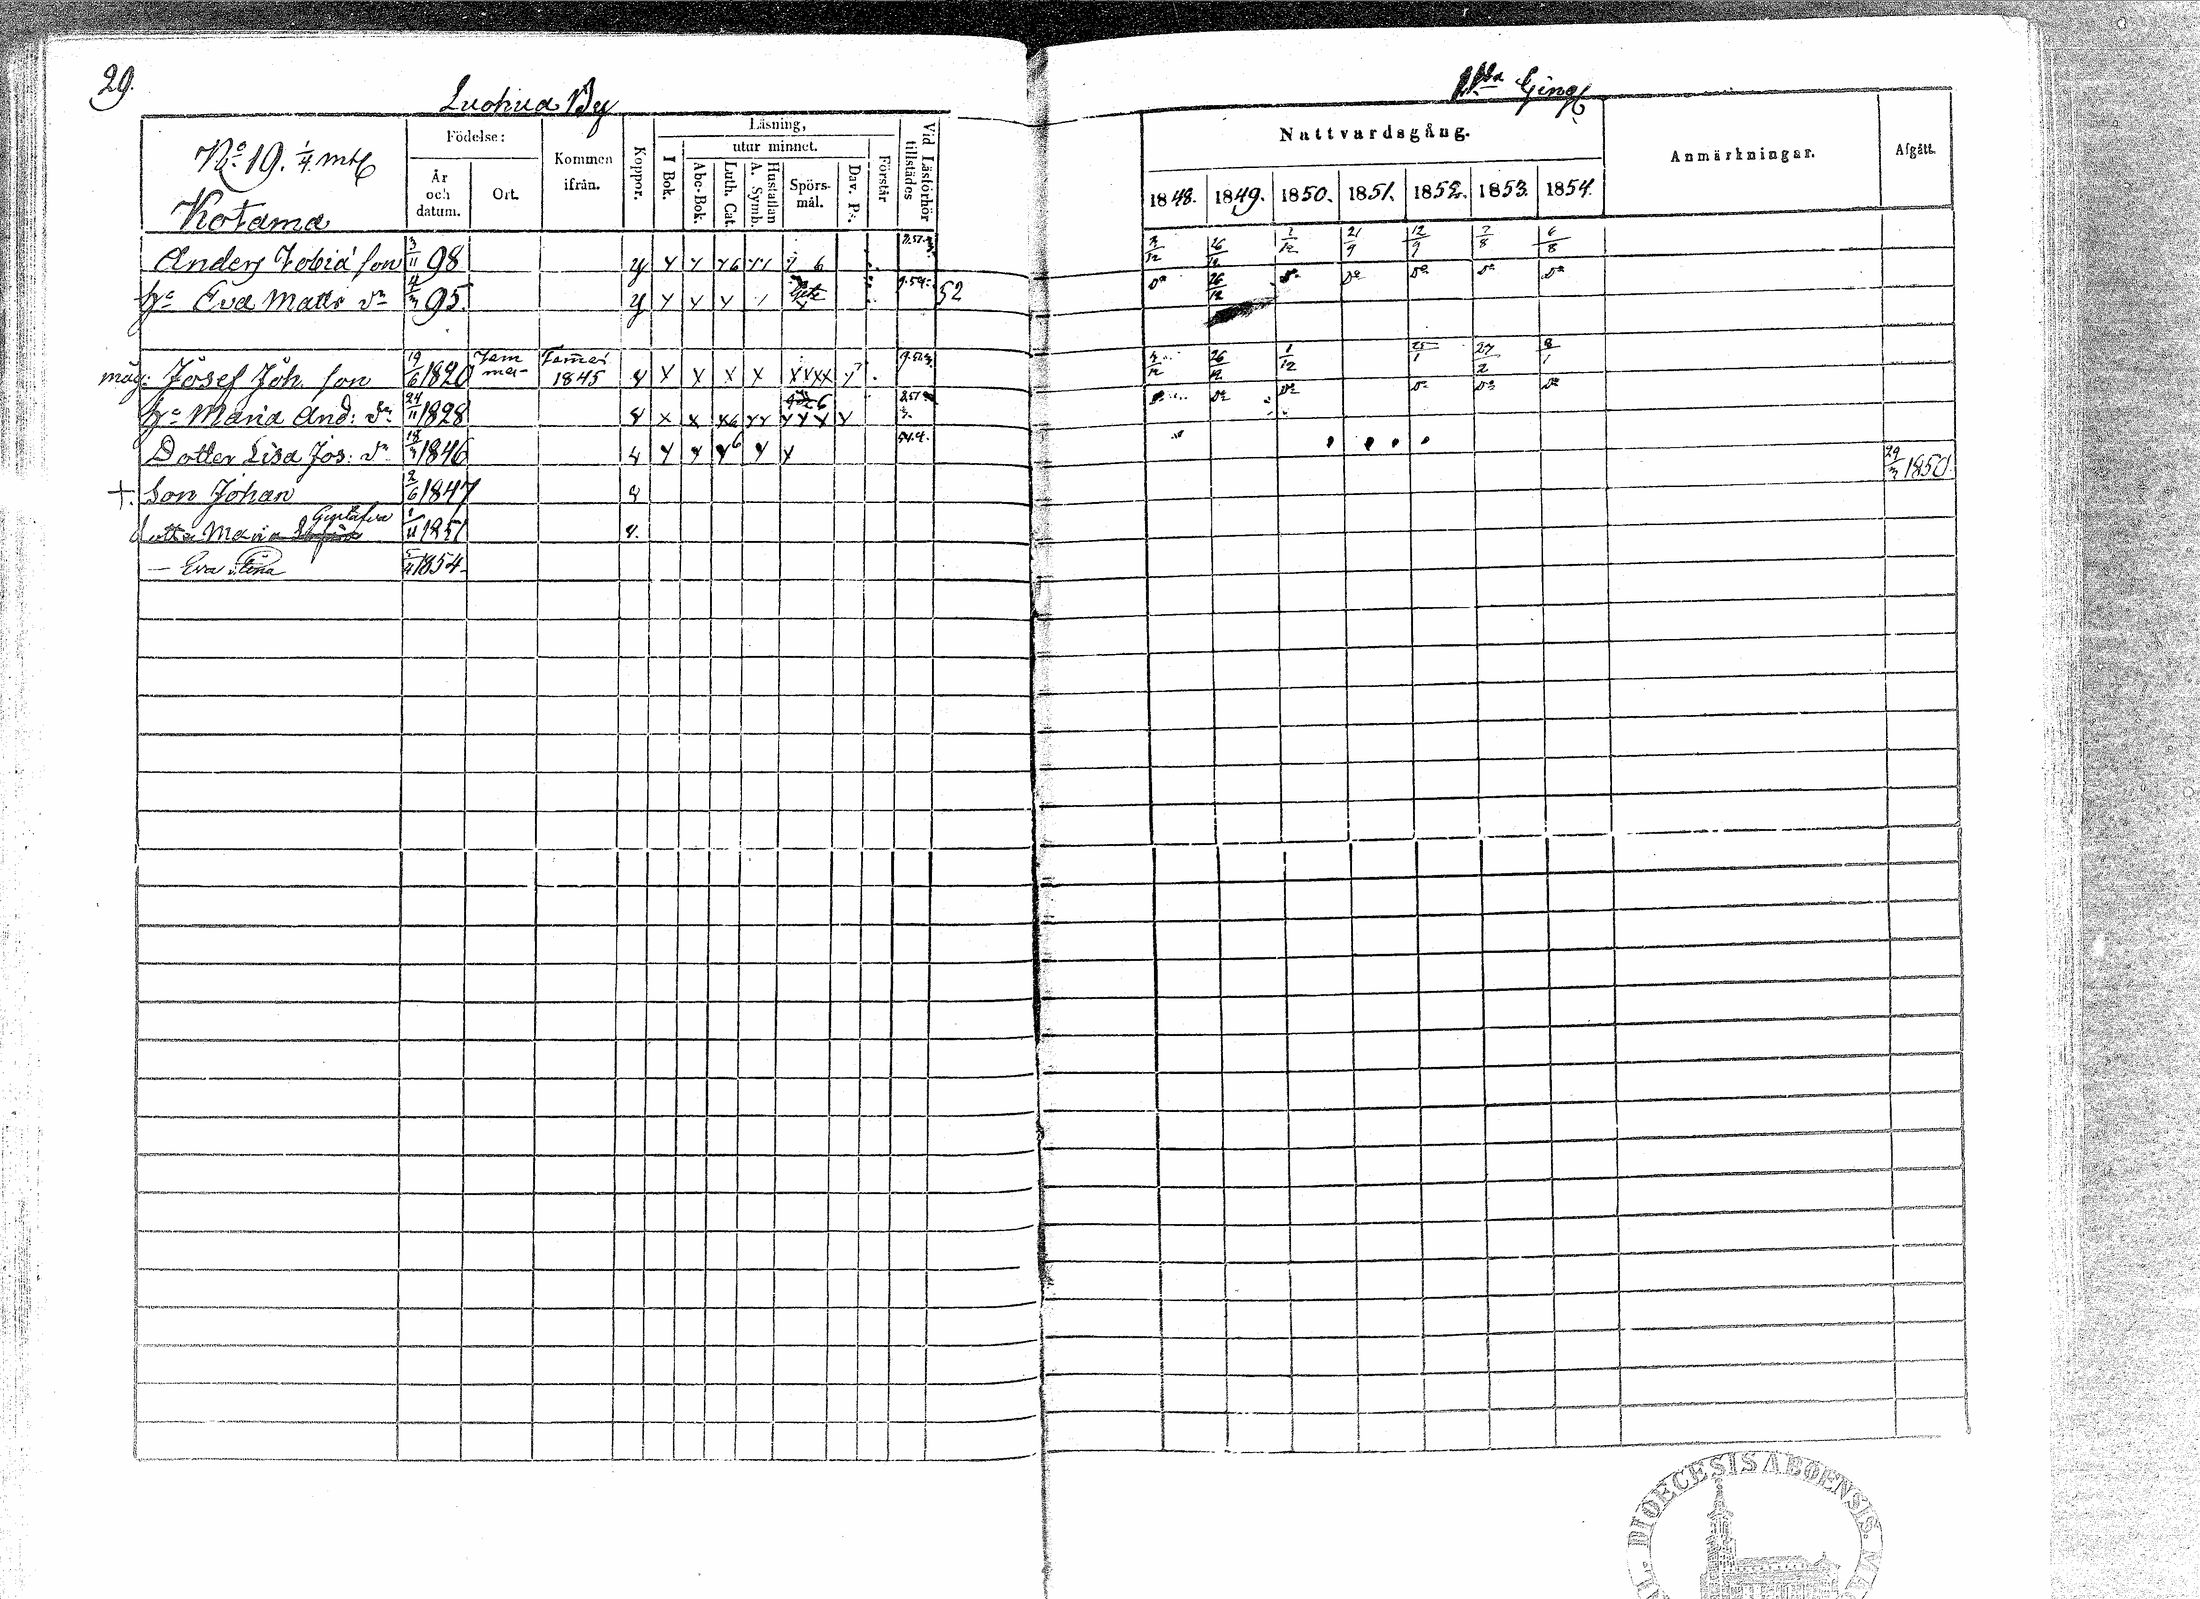 29.
Luohua By
No 19. 1/4 mtl
Kotama
Födelse:
År och datum.
Ort.
Kommen ifrån.
Koppor.
Läsning,
I Bok.
utur minnet.
Abc-Bok.
Luth. Cat.
Hustaflan A. Symb.
Spörs-mål.
Dav. Ps.
Förstår
Vid Läsförhör tillstädes
Nattvardsgång.
1848. 1849. 1850. 1851. 1852. 1853. 1854.
Anmärkningar.
Afgått.
Anders Tobiä son 3/11 98 y 3/12 26/12 1/12 21/9 12/9 7/8 6/8
hu Eva Matts dr 95. y 52 do 26/12 do do do do do
måg: Josef Joh. son 19/6 1820 1845 26/12 1/12 25/1 27/2 8/1
hu Maria And: dr 24/11 1828 do do do do do
Dotter Lisa Jos: dr 1846
†. Son Johan 2/6 1847 29/3 1850
dotter Maria Gustafva 1851
— Eva Stina 1854
DIOECESIS ABOENSIS.